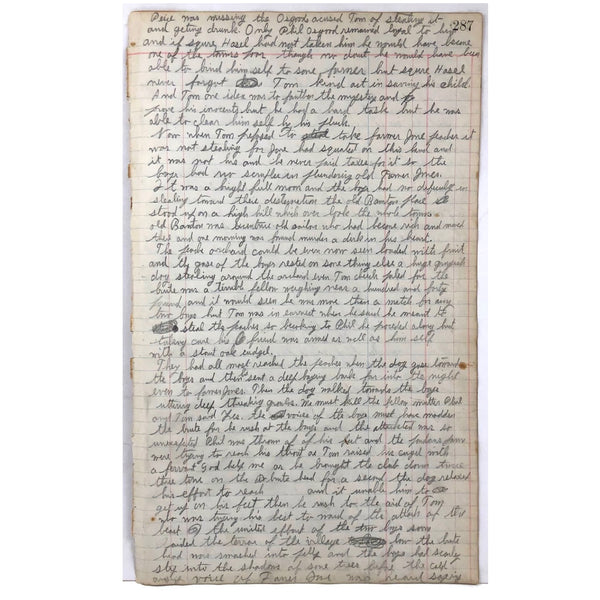 287
was missing the Osgood acused Tom of stealing it
and geting drunk. Only Phil Osgood remained loyal to him
and if squre Hazel had not taken him he would have become
one of the towns poor though no doubt he would have been
able to bind himself to some farmer but squre Hazel
never forgot Tom kind act in saving his child.
And Tom one idea was to farther the mystery and
prove his inocents but he had a hard task but he was
able to clear him self by his pluck.
Now when Tom prepared to take farmer Jone peaches it
was not stealing for Jone had squated on this land and
it was not his and he never paid taxes for it so the
boys had no scruples in plundering old Farmer Jones.
It was a bright full moon and the boys had no dificulty in
stealing toward there destination the old Banton place
stood up on a high hill which over look the whole town.
old Banton was old sailor who had become rich and moved
there and one morning was found murder a dirk in his heart.
The peach orchard could be even now seen loaded with fruit
and the gaze of the boys rested on some thing else a huge
dog stealing around the orchard even Tom cheek paled for the
brute was a terrible fellow weighing near a hundred and forty
pound and it would seem he was more then a match for any
two boys but Tom was in earnest when he said he meant to
steal the peaches so to Phil he proceded along but
taking care his friend was armed as well as him self
with a stout oak cudgel.
They had all most reached the peaches when the dog gase towards
the boys and then sent a deep baying bark far into the night
even to farmer Jones. Then the dog walked towards the boys
uttering deep growls. We must kill the fellow matter Phil
and Tom said Yes. The voice of the boys must have madden
the brute for he rush at the boys and the attacked was so
unexpected Phil was throw of of his feet and the
were trying to reach his throat as Tom raised his cugel with
a fervant God help me as he brought the club down twice
three time on the brute head for a second the dog relaxed
his effort to reach and it unable him to
get up on his feet then he rush to the aid of Tom
who was trying his best to ward of the attack of the
beast the united effort of the two boys soon
the terror of the village low the brute
head was smashed into jelly and the boys had scarcly
step into the shadows of some trees before the
voice of Farmer Jone was heard saying